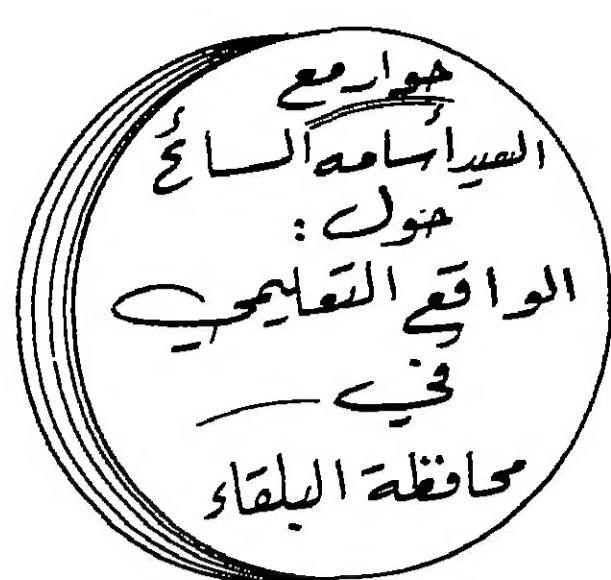 حوار مع
السيد أسامه السائح
حول :
الواقع التعليمي
في
محافظة البلقاء